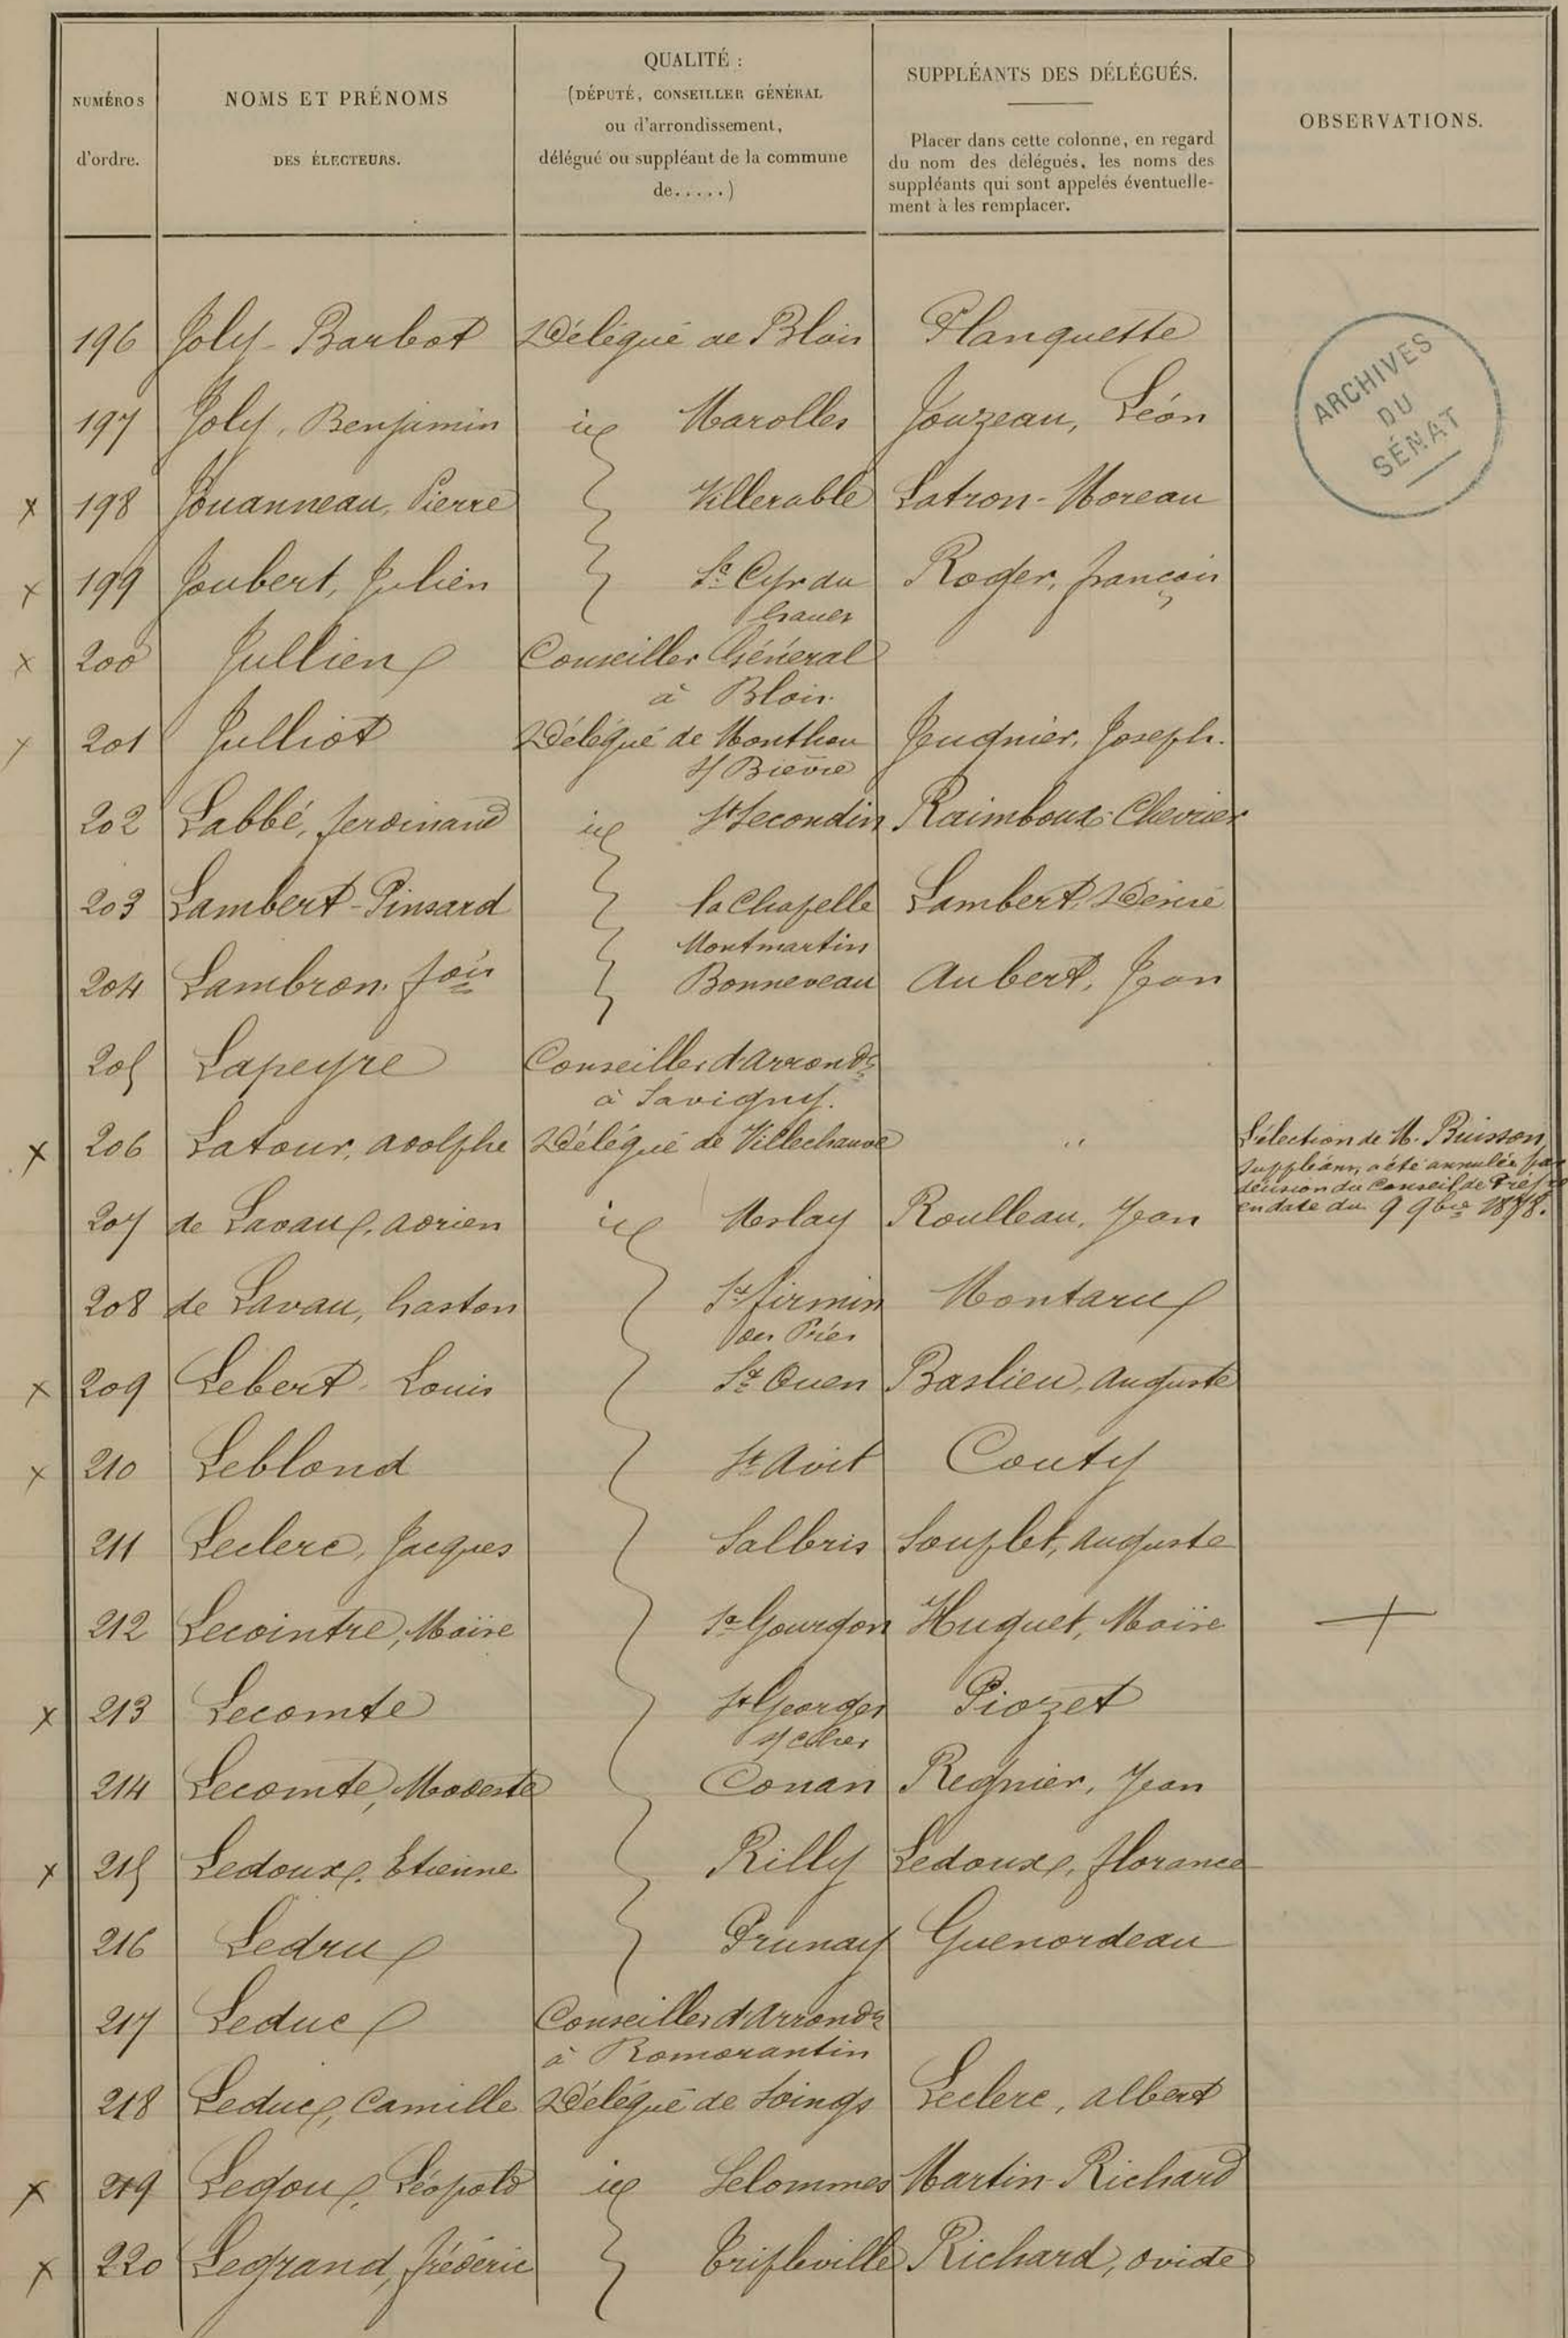 NUMÉROS d'ordre.
NOMS ET PRÉNOMS
DES ÉLECTEURS.
QUALITÉ :
(DÉPUTÉ, CONSEILLER GÉNÉRAL
ou d'arrondissement,
délégué ou suppléant de la commune
de.....)
SUPPLÉANTS DES DÉLÉGUÉS.
Placer dans cette colonne, en regard
du nom des délégués, les noms des
suppléants qui sont appelés éventuelle-
ment à les remplacer.
OBSERVATIONS.
ARCHIVES
DU
SÉNAT
196 Joly-Barbot Délégué de Blois Planquette
197 Joly, Benjamin id Marolles Jouzeau, Léon
x 198 Jouanneau, Pierre Villerable Latron-Moreau
x 199 Joubert, Julien St Cyr du Roger, françois
Gault
x 200 Jullien Conseiller Général
à Blois.
x 201 Julliot Délégué de Monthou Jeugnier, Joseph.
s/ Bièvre
202 Labbé, ferdinand id St Secondin Raimboux-Chevrier
203 Lambert-Pinsard la Chapelle Lambert, Désiré
Montmartin
204 Lambron, fois Bonneveau Aubert, Jean
205 Lapeyre Conseiller d'arrondt
à Savigny.
x 206 Latour, adolphe Délégué de Villechauve " L'élection de M. Buisson,
suppléant, a été annulée par
décision du Conseil de Préfre
en date du 9 9bre 1878.
207 de Lavau, adrien id Meslay Roulleau, Jean
208 de Lavau, Gaston St firmin Montaru
des Prés
x 209 Lebert Louis St Ouen Baslieu, auguste
x 210 Leblond St Avit Couty
211 Leclerc, Jacques Salbris Souflet, auguste
212 Lecointre, Maire St Gourgon Huguet, Maire +
x 213 Lecomte St Georges Piozet
s/ Cher
214 Lecomte, Modeste Conan Regnier, Jean
x 215 Ledoux, Etienne Rilly Ledoux, florance
216 Ledru Prunay Guenordeau
217 Leduc Conseiller d'Arrondt
à Romorantin
218 Leduc, Camille Délégué de Soings Leclerc, albert
x 219 Legou, Léopold id Selommes Martin-Richard
x 220 Legrand, frédéric Tripleville Richard, ovide